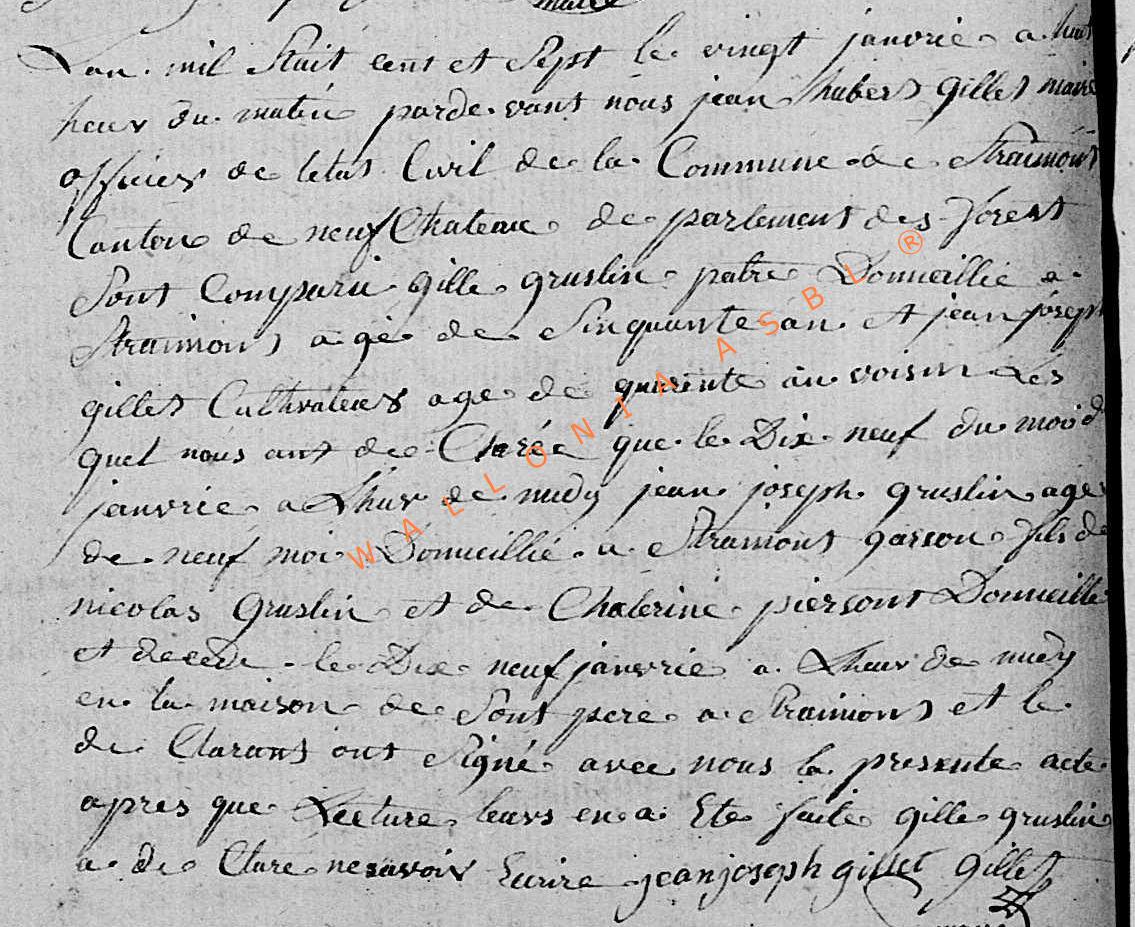 maire
Lan mil Huit cent et Sept le vingt janvrie a huit
heur du matin parde vant nous jean hubert gillet maire
officier de letat Civil de la Commune de Straimont
Canton de neuf Chateau de partement des forest
Sont Comparu gille gruslin patre Domeillie a
Straimont agé de Sinquante an et jean joseph
gillet Cultivateur age de quarente an voisin Les
quel nous ant de Claréé que le Dix neuf du moi d
janvrie a Lhur de midy jean joseph gruslin age
de neuf moi Domeillié a Straimont garson fils de
nicolas gruslin et de Chaterine piersont Domeille
et decede le Dix neuf janvrie a Lheur de midy
en la maison de Sont pere a Straimont et le
de Clarant ont Signé avec nous la presente acte
apres que Lecture leurs en a Ete faite gille gruslin
a de Clare ne savoir Ecrire jean joseph gillet gillet
maire
WALLONIA ASBL ®